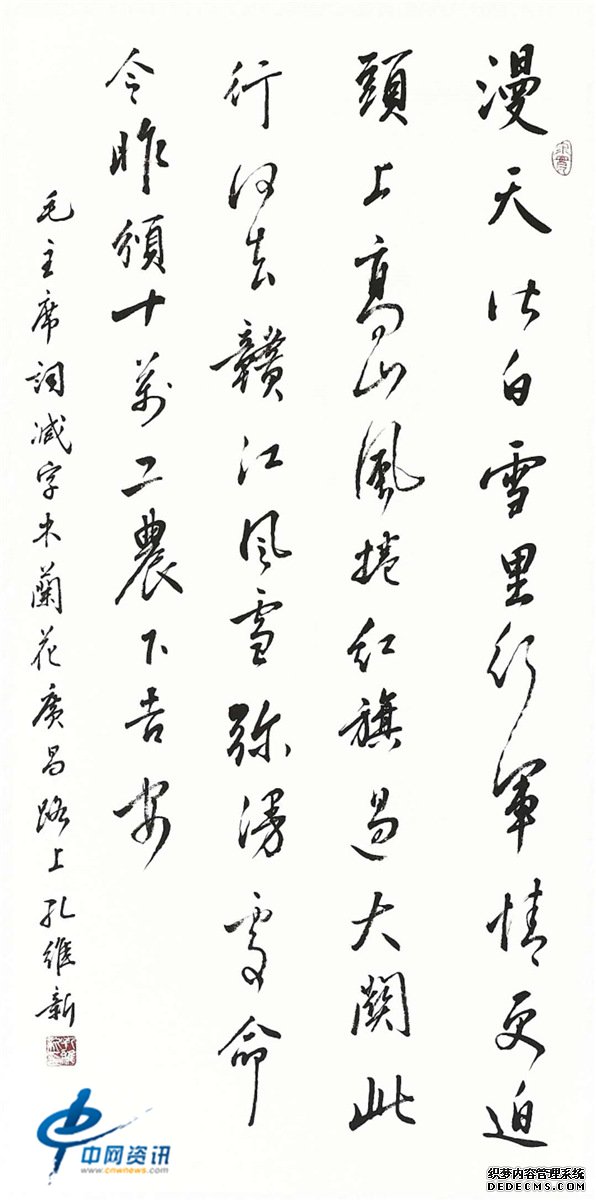 漫天皆白雪里行軍情更迫
頭上高山風捲紅旗過大關此
行何去贛江风雪弥漫處命
令昨頒十萬工農下吉安
毛主席詞减字木蘭花廣昌路上孔維新
中网资讯
www.cnwnews.com
织梦内容管理系统
DEDECMS.COM